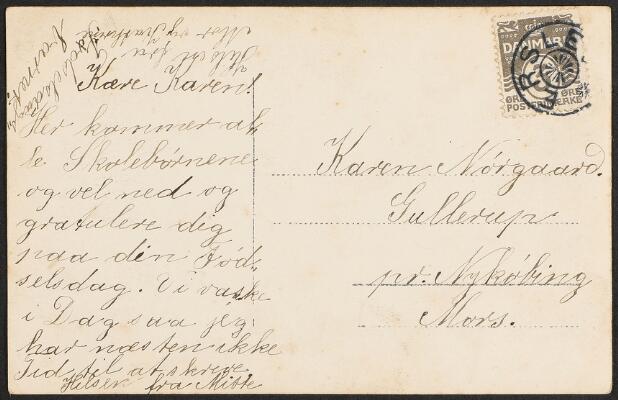 Kære Karen!
Her kommer al-
le Skolebørnene
og vel ned og
gratulere dig
paa din Fød-
selsdag. Vi vaske
i Dag saa jeg
har næsten ikke
Tid til at skrive.
Hilsen fra Mitte
Karen Nørgaard.
Gullerup
pr. Nykøbing
Mors.
DANMARK
ØRE
ØRE
POSTFRIMÆRKE
ERSLE